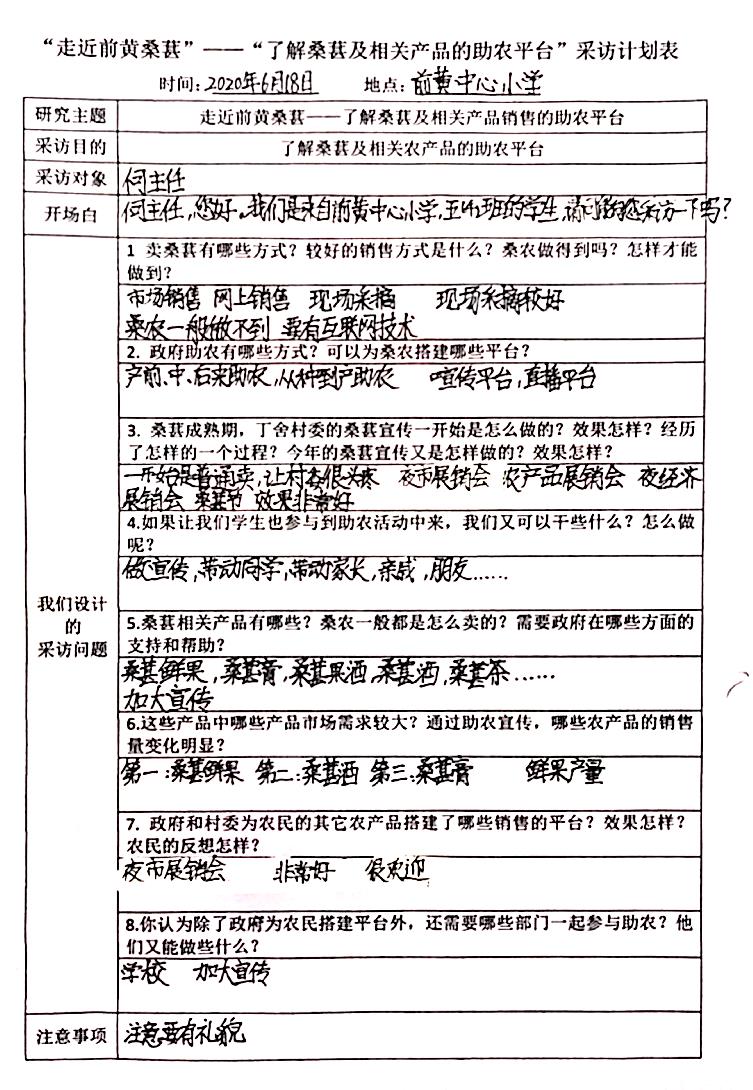 “走近前黄桑葚”——“了解桑葚及相关产品的助农平台”采访计划表
时间:2020年6月18日 地点:前黄中心小学
研究主题 走近前黄桑葚——了解桑葚及相关产品销售的助农平台
采访目的 了解桑葚及相关农产品的助农平台
采访对象 何主任
开场白 何主任,您好。我们是来自前黄中心小学,五(4)班的学生,请问能采访一下吗?
我们设计
的
采访问题
1 卖桑葚有哪些方式?较好的销售方式是什么?桑农做得到吗?怎样才能
做到?
市场销售 网上销售 现场采摘 现场采摘较好
桑农一般做不到 要有互联网技术
2. 政府助农有哪些方式?可以为桑农搭建哪些平台?
产前、中、后来助农,从种到产助农 宣传平台,直播平台
3. 桑葚成熟期,丁舍村委的桑葚宣传一开始是怎么做的?效果怎样?经历
了怎样的一个过程?今年的桑葚宣传又是怎样做的?效果怎样?
一开始是普通卖,让村委很头疼 夜市展销会 农产品展销会 夜经济
展销会 桑葚节 效果非常好
4.如果让我们学生也参与到助农活动中来,我们又可以干些什么?怎么做
呢?
做宣传,带动同学,带动家长,亲戚,朋友……
5.桑葚相关产品有哪些?桑农一般都是怎么卖的?需要政府在哪些方面的
支持和帮助?
桑葚鲜果,桑葚膏,桑葚果酒,桑葚酒,桑葚茶……
加大宣传
6.这些产品中哪些产品市场需求较大?通过助农宣传,哪些农产品的销售
量变化明显?
第一:桑葚鲜果 第二:桑葚酒 第三:桑葚膏 鲜果产量
7. 政府和村委为农民的其它农产品搭建了哪些销售的平台?效果怎样?
农民的反想怎样?
夜市展销会 非常好 很欢迎
8.你认为除了政府为农民搭建平台外,还需要哪些部门一起参与助农?他
们又能做些什么?
学校 加大宣传
注意事项 注意要有礼貌